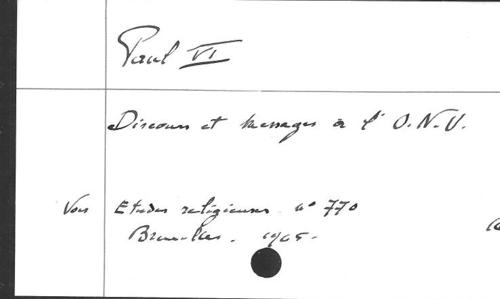 Paul VI
Discours et Messages à l'O.N.U.
Voir Etudes religieuses n° 770
Bruxelles. 1965.